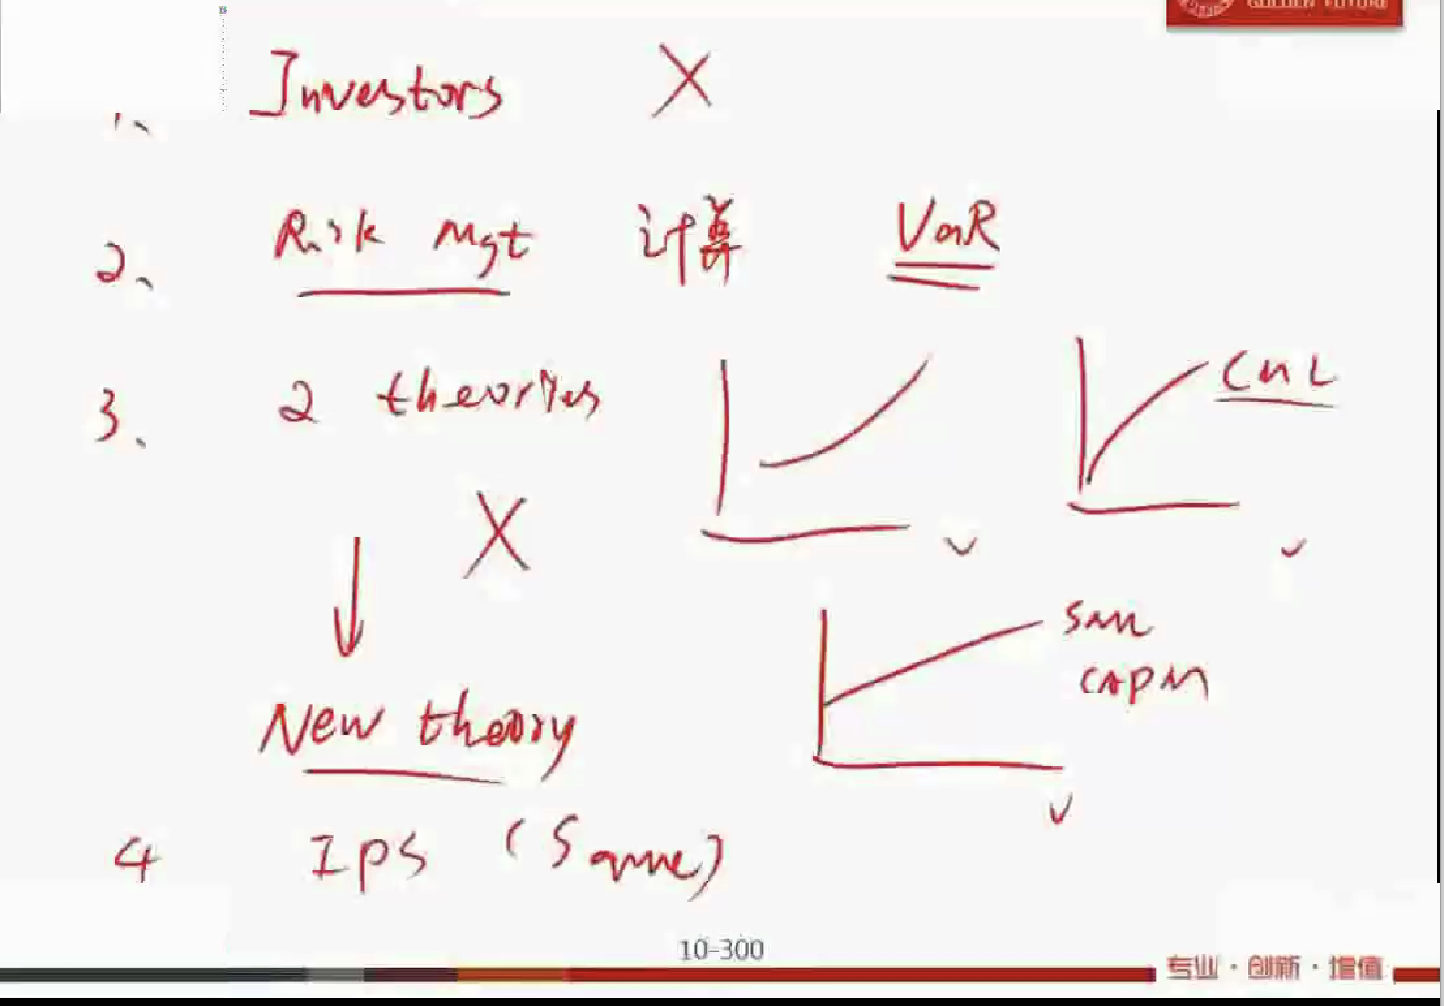 GOLDEN FUTURE
1、 Investors X
2、 Risk Mgt 计算 VaR
3、 2 theories
CML
X
SML
CAPM
New theory
4 IPS (Same)
10-300
专业·创新·增值